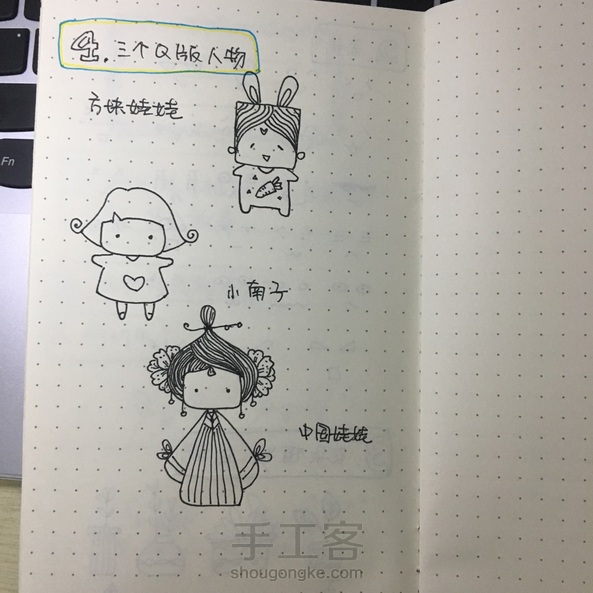 4.三个Q版人物
方妹娃娃
小南子
中国娃娃
Fn
手工客
shougongke.com